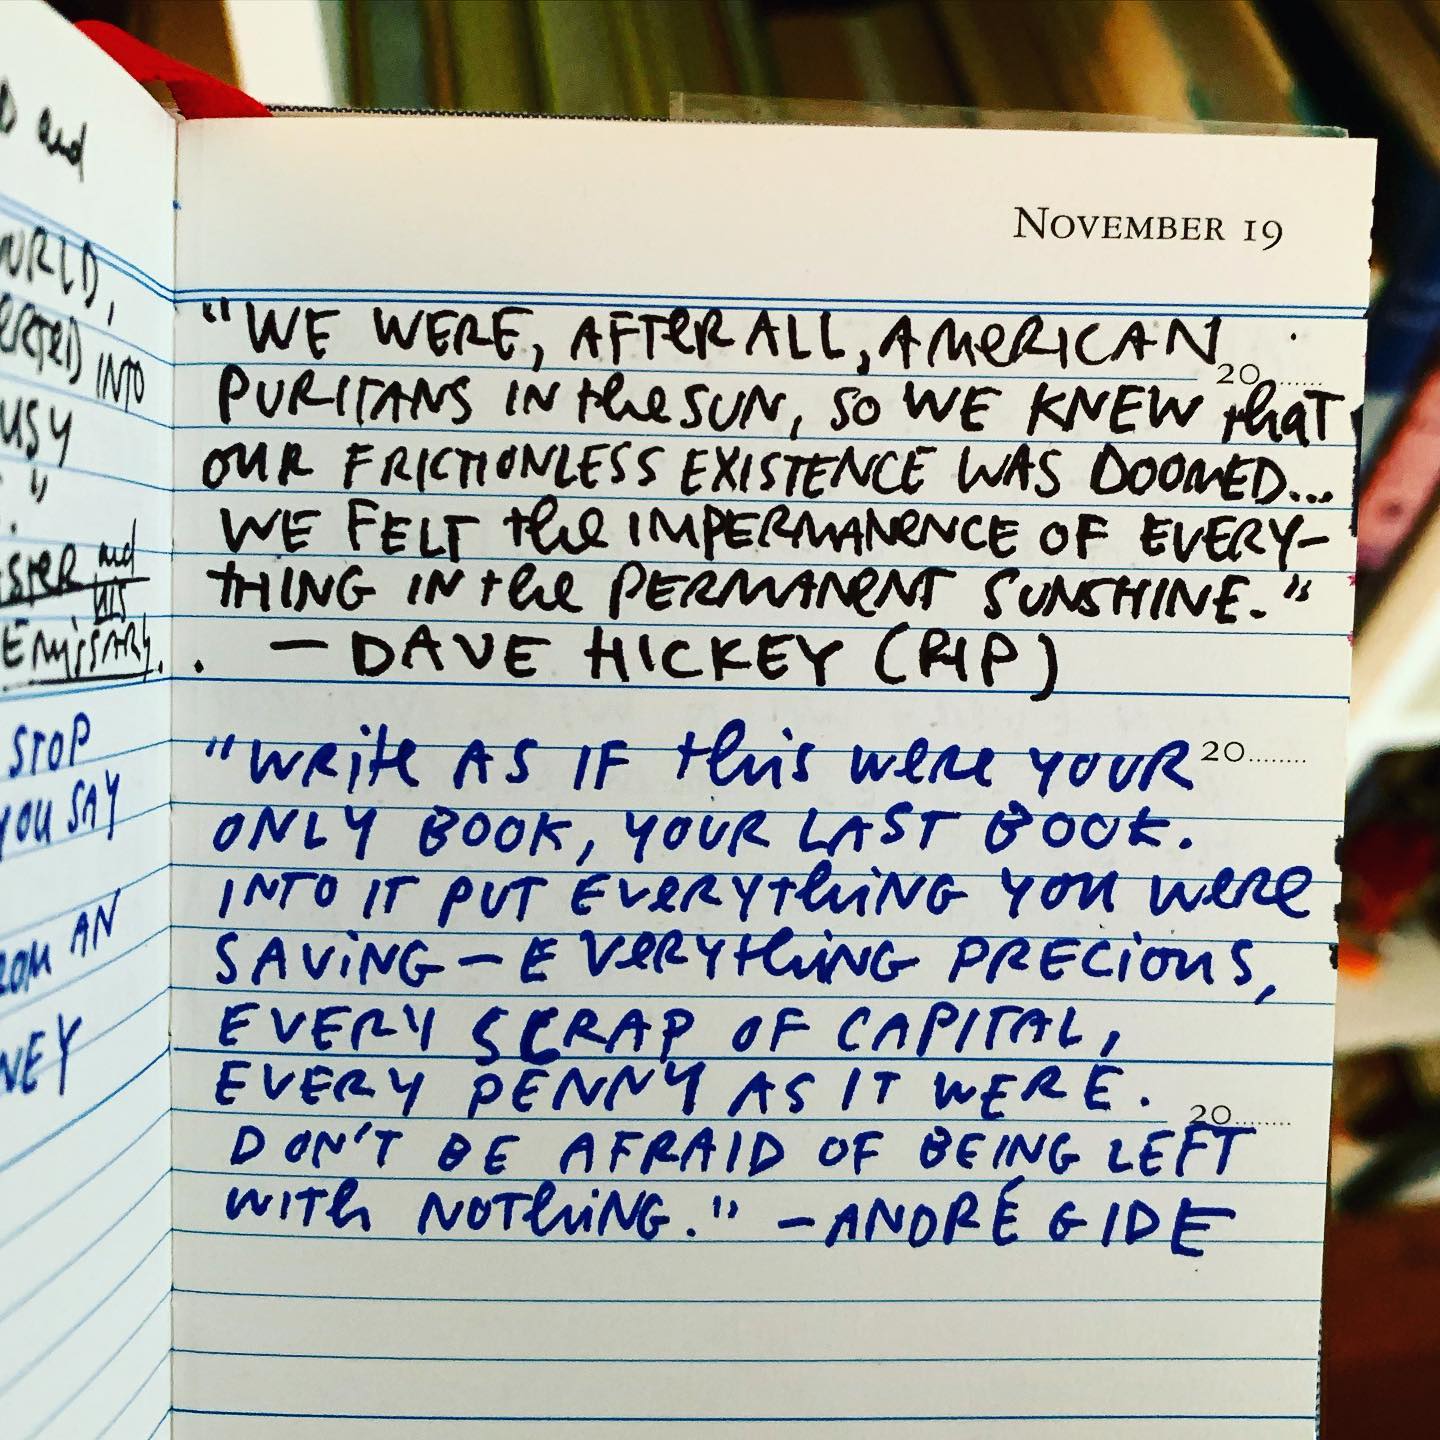 and
WORLD,
INTO
" 
and
his
Emissary.
STOP
YOU SAY
FROM AN
NOVEMBER 19
"WE WERE, AFTER ALL, AMERICAN
20......
PURITANS IN the SUN, SO WE KNEW that
OUR FRICTIONLESS EXISTENCE WAS DOOMED...
WE FELT the IMPERMANENCE OF EVERY-
THING IN the PERMANENT SUNSHINE."
— DAVE HICKEY (RIP)
"Write AS IF this were YOUR
20........
ONLY BOOK, YOUR LAST BOOK.
INTO IT PUT EVERYthiNG YOU were
SAVING — EVERYthiNG PRECIOUS,
EVERY SCRAP OF CAPITAL,
EVERY PENNY AS IT WERE.
20........
DON'T BE AFRAID OF BEING LEFT
WITH NOTHING." — ANDRÉ GIDE